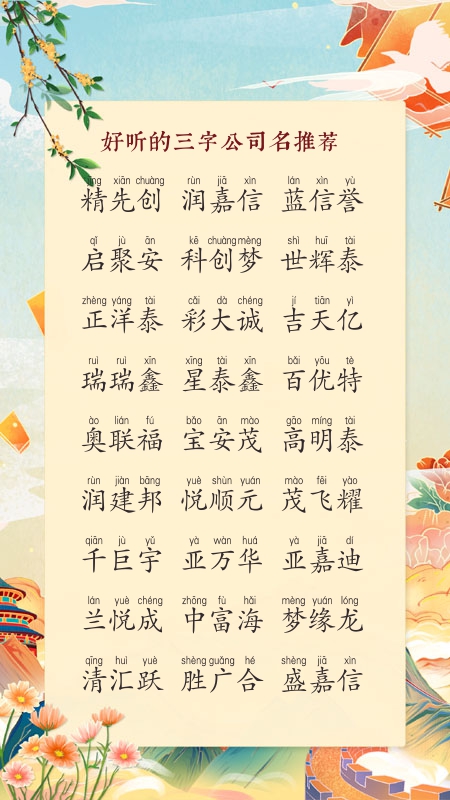 好听的三字公司名推荐
jīng xiān chuàng rùn jiā xìn lán xìn yù
精先创 润嘉信 蓝信誉
qǐ jù ān kē chuàng mèng shì huī tài
启聚安 科创梦 世辉泰
zhèng yáng tài cǎi dà chéng jí tiān yì
正洋泰 彩大诚 吉天亿
ruì ruì xīn xīng tài xīn bǎi yōu tè
瑞瑞鑫 星泰鑫 百优特
ào lián fú bǎo ān mào gāo míng tài
奥联福 宝安茂 高明泰
rùn jiàn bāng yuè shùn yuán mào fēi yào
润建邦 悦顺元 茂飞耀
qiān jù yǔ yà wàn huá yà jiā dí
千巨宇 亚万华 亚嘉迪
lán yuè chéng zhōng fù hǎi mèng yuán lóng
兰悦成 中富海 梦缘龙
qīng huì yuè shèng guǎng hé shèng jiā xìn
清汇跃 胜广合 盛嘉信